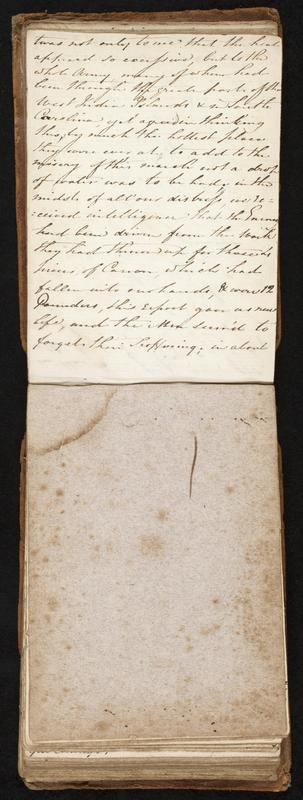 twas not only to me that the heat
appeared so excessive, but to the
whole Army, many of whom had
been through the greate parte of the
West India Islands & in South
Carolina, yet agreed in thinking
this by much the hottest place
they were ever at, to add to the
misery of this march not a drop
of water was to be had, in the
midst of all our distress, we re-
:ceived intelligence that the Enemy
had been driven from the Work
they had thrown up for
pieces of Canon which had
fallen into our hands, & were 12
Pounders, this report gave us new
life, and the Men seem'd to
forget their suffering, in about